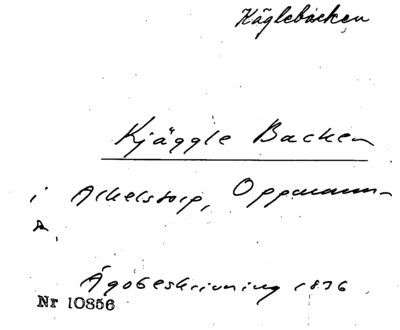 Käglebacken
Kjäggle Backen
i Arkelstorp, Oppmanna
s.
Ägobeskrivning 1836
Nr 10856